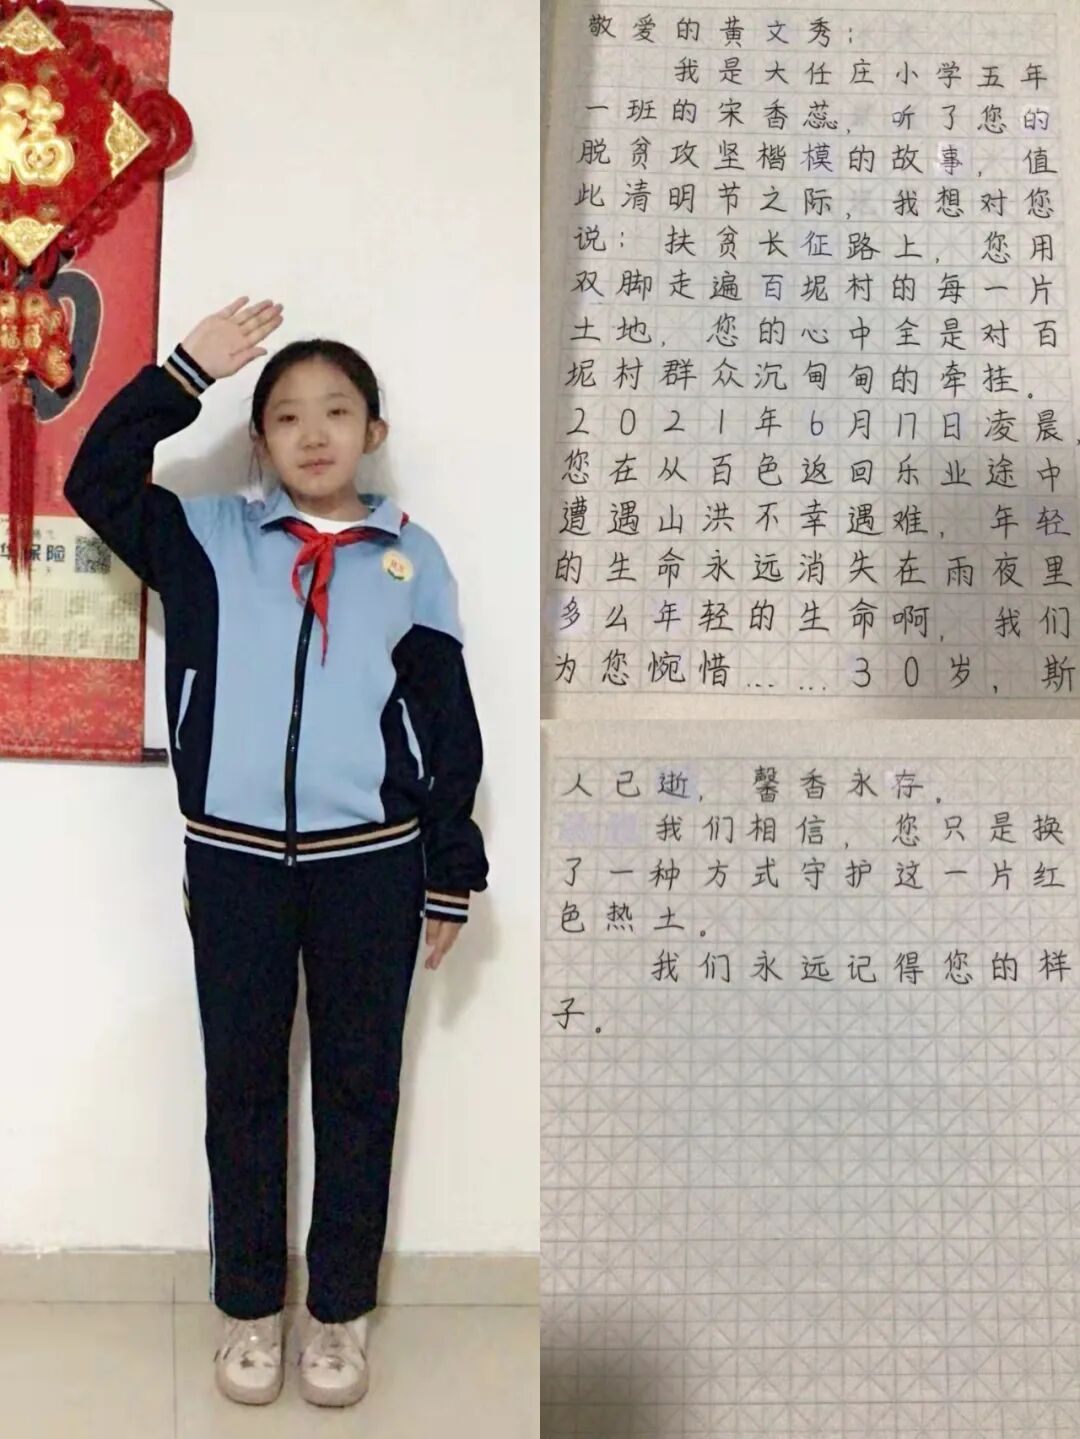 福
华保险
敬爱的黄文秀：
我是大任庄小学五年
一班的宋香蕊，听了您的
脱贫攻坚楷模的故事，值
此清明节之际，我想对您
说：扶贫长征路上，您用
双脚走遍百坭村的每一片
土地，您的心中全是对百
坭村群众沉甸甸的牵挂。
2021年6月17日凌晨，
您在从百色返回乐业途中
遭遇山洪不幸遇难，年轻
的生命永远消失在雨夜里
多么年轻的生命啊，我们
为您惋惜……30岁，斯
人已逝，馨香永存。
我们相信，您只是换
了一种方式守护这一片红
色热土。
我们永远记得您的样
子。